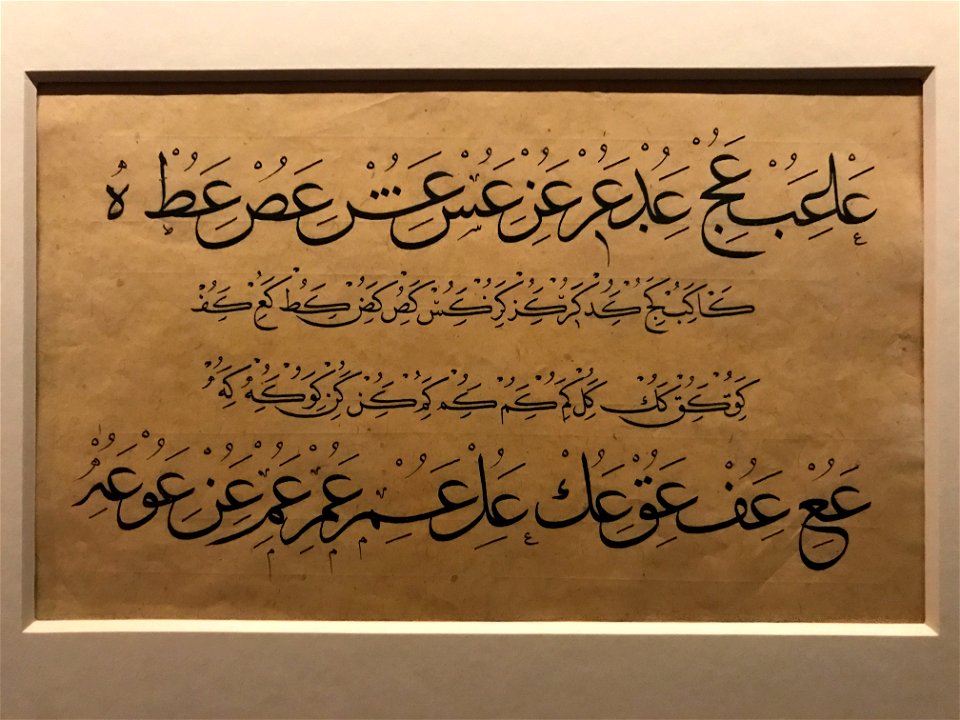 عا عب عج عد عر عز عس عش عص عط ه
كا كب كج كد كر كز كز كس كص كض كط كع كف
كق كق كك كل كم كم كم كم كن كن كو كه كه
عع عف عق عك عل عم عم عم عن عو عه